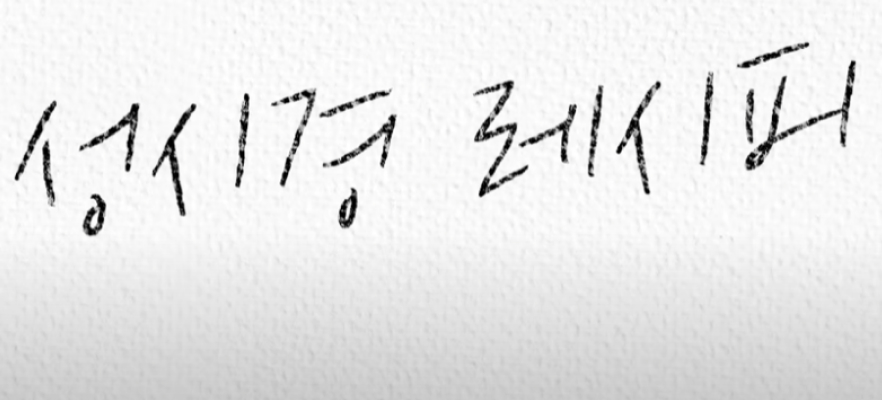 성시경 레시피